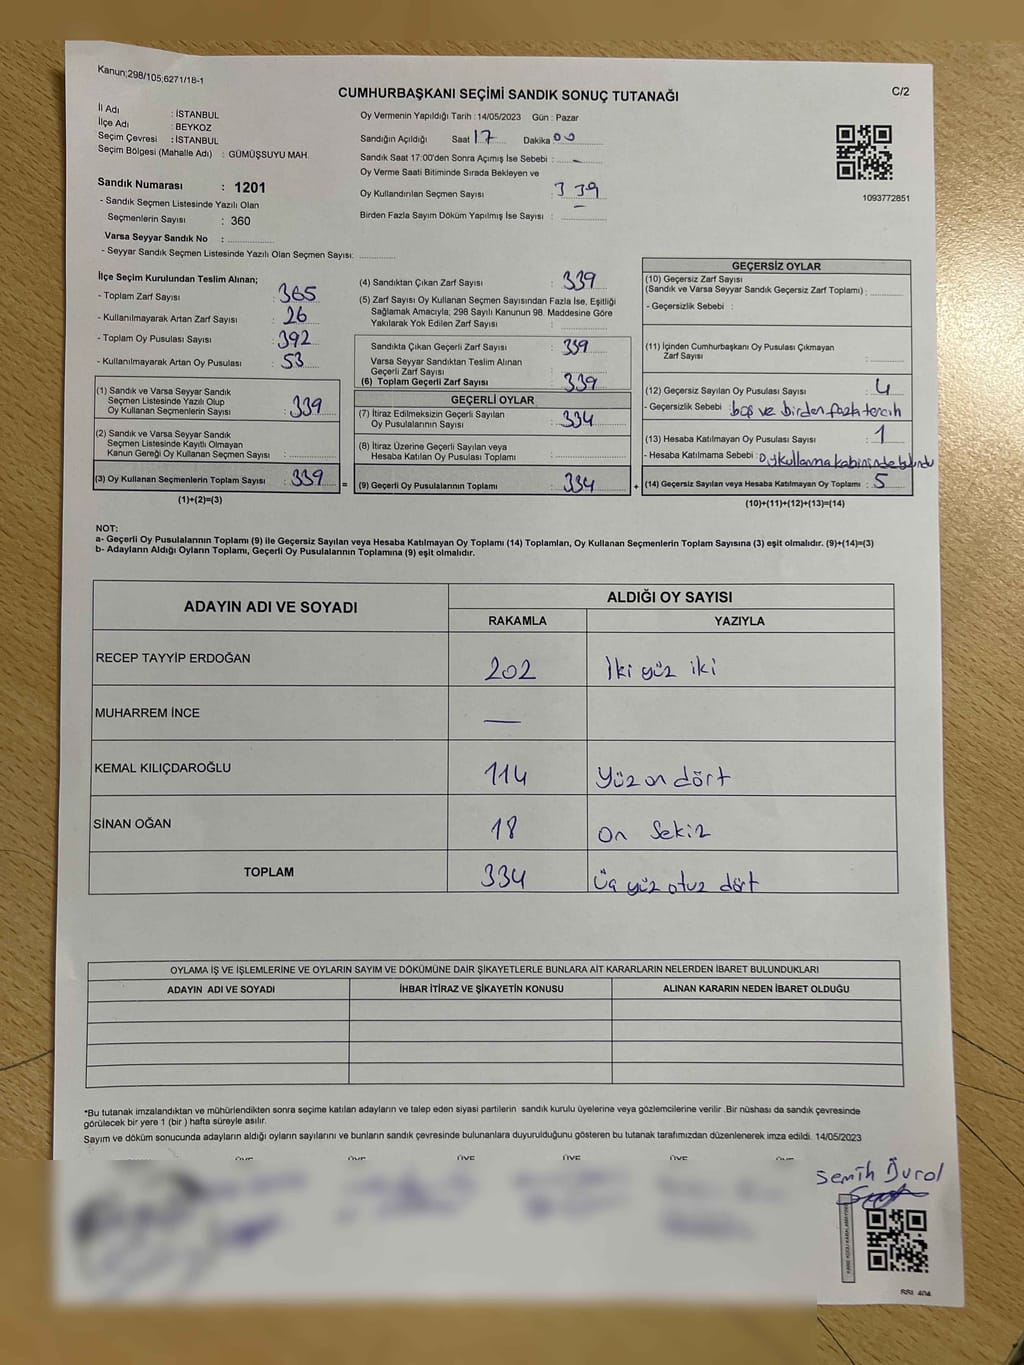 Kanun;298/105,6271/18-1
C/2
CUMHURBAŞKANI SEÇİMİ SANDIK SONUÇ TUTANAĞI
İl Adı : İSTANBUL
İlçe Adı : BEYKOZ
Seçim Çevresi : İSTANBUL
Seçim Bölgesi (Mahalle Adı) : GÜMÜŞSUYU MAH.
Sandık Numarası : 1201
- Sandık Seçmen Listesinde Yazılı Olan
Seçmenlerin Sayısı : 360
Varsa Seyyar Sandık No : ..............
- Seyyar Sandık Seçmen Listesinde Yazılı Olan Seçmen Sayısı: ............
Oy Vermenin Yapıldığı Tarih : 14/05/2023 Gün : Pazar
Sandığın Açıldığı Saat 17 Dakika 00
Sandık Saat 17:00'den Sonra Açımış İse Sebebi : -
Oy Verme Saati Bitiminde Sırada Bekleyen ve
Oy Kullandırılan Seçmen Sayısı : 339
Birden Fazla Sayım Döküm Yapılmış İse Sayısı : -
1093772851
İlçe Seçim Kurulundan Teslim Alınan;
- Toplam Zarf Sayısı : 365
- Kullanılmayarak Artan Zarf Sayısı : 26
- Toplam Oy Pusulası Sayısı : 392
- Kullanılmayarak Artan Oy Pusulası : 53
(1) Sandık ve Varsa Seyyar Sandık
Seçmen Listesinde Yazılı Olup
Oy Kullanan Seçmenlerin Sayısı : 339
(2) Sandık ve Varsa Seyyar Sandık
Seçmen Listesinde Kayıtlı Olmayan
Kanun Gereği Oy Kullanan Seçmen Sayısı : ............
(3) Oy Kullanan Seçmenlerin Toplam Sayısı : 339
(1)+(2)=(3)
=
(4) Sandıktan Çıkan Zarf Sayısı : 339
(5) Zarf Sayısı Oy Kullanan Seçmen Sayısından Fazla İse, Eşitliği
Sağlamak Amacıyla; 298 Sayılı Kanunun 98. Maddesine Göre
Yakılarak Yok Edilen Zarf Sayısı : ............
Sandıkta Çıkan Geçerli Zarf Sayısı : 339
Varsa Seyyar Sandıktan Teslim Alınan
Geçerli Zarf Sayısı : ............
(6) Toplam Geçerli Zarf Sayısı : 339
GEÇERLİ OYLAR
(7) İtiraz Edilmeksizin Geçerli Sayılan
Oy Pusulalarının Sayısı : 334
(8) İtiraz Üzerine Geçerli Sayılan veya
Hesaba Katılan Oy Pusulası Toplamı : ............
(9) Geçerli Oy Pusulalarının Toplamı : 334
+
GEÇERSİZ OYLAR
(10) Geçersiz Zarf Sayısı
(Sandık ve Varsa Seyyar Sandık Geçersiz Zarf Toplamı) : ............
- Geçersizlik Sebebi :
(11) İçinden Cumhurbaşkanı Oy Pusulası Çıkmayan
Zarf Sayısı : ............
(12) Geçersiz Sayılan Oy Pusulası Sayısı : 4
- Geçersizlik Sebebi : boş ve birden fazla tercih
(13) Hesaba Katılmayan Oy Pusulası Sayısı : 1
- Hesaba Katılmama Sebebi : oy kullanma kabininde bulundu
(14) Geçersiz Sayılan veya Hesaba Katılmayan Oy Toplamı : 5
(10)+(11)+(12)+(13)=(14)
NOT:
a- Geçerli Oy Pusulalarının Toplamı (9) ile Geçersiz Sayılan veya Hesaba Katılmayan Oy Toplamı (14) Toplamları, Oy Kullanan Seçmenlerin Toplam Sayısına (3) eşit olmalıdır. (9)+(14)=(3)
b- Adayların Aldığı Oyların Toplamı, Geçerli Oy Pusulalarının Toplamına (9) eşit olmalıdır.
ADAYIN ADI VE SOYADI
ALDIĞI OY SAYISI
RAKAMLA YAZIYLA
RECEP TAYYİP ERDOĞAN 202 İki yüz iki
MUHARREM İNCE —
KEMAL KILIÇDAROĞLU 114 Yüz on dört
SİNAN OĞAN 18 on sekiz
TOPLAM 334 Üç yüz otuz dört
OYLAMA İŞ VE İŞLEMLERİNE VE OYLARIN SAYIM VE DÖKÜMÜNE DAİR ŞİKAYETLERLE BUNLARA AİT KARARLARIN NELERDEN İBARET BULUNDUKLARI
ADAYIN ADI VE SOYADI İHBAR İTİRAZ VE ŞİKAYETİN KONUSU ALINAN KARARIN NEDEN İBARET OLDUĞU
*Bu tutanak imzalandıktan ve mühürlendikten sonra seçime katılan adayların ve talep eden siyasi partilerin sandık kurulu üyelerine veya gözlemcilerine verilir .Bir nüshası da sandık çevresinde
görülecek bir yere 1 (bir ) hafta süreyle asılır.
Sayım ve döküm sonucunda adayların aldığı oyların sayılarını ve bunların sandık çevresinde bulunanlara duyurulduğunu gösteren bu tutanak tarafımızdan düzenlenerek imza edildi. 14/05/2023
ÜYE ÜYE ÜYE ÜYE ÜYE
Semih